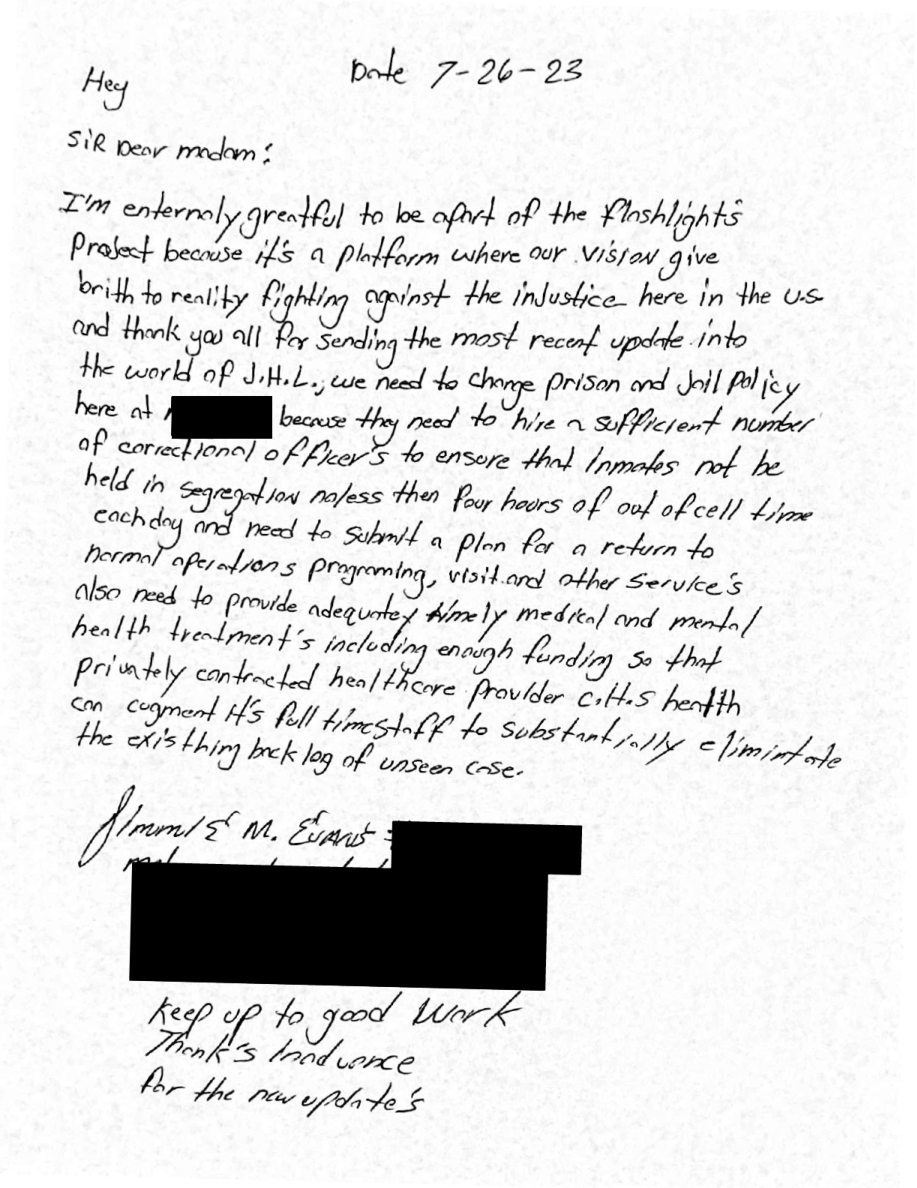 Date 7-26-23
Hey
SiR Dear madam:
I'm enternaly greatful to be apart of the flashlights
Project because it's a platform where our vision give
brith to reality fighting against the injustice here in the U.S.
and thank you all for sending the most recent update into
the world of J.H.L., we need to change prison and Jail policy
here at because they need to hire a sufficient number
of correctional officer's to ensure that inmates not be
held in segregation noless then four hours of out of cell time
each day and need to submit a plan for a return to
normal operations programing, visit and other service's
also need to provide adequatey timely medical and mental
health treatment's including enough funding so that
privately contracted healthcare provider C.H.S health
can augment it's full timestaff to substantially elimintate
the existhing backlog of unseen case.
Jimmie M. Evans
keep up to good Work
Thank's Inadvance
for the new update's